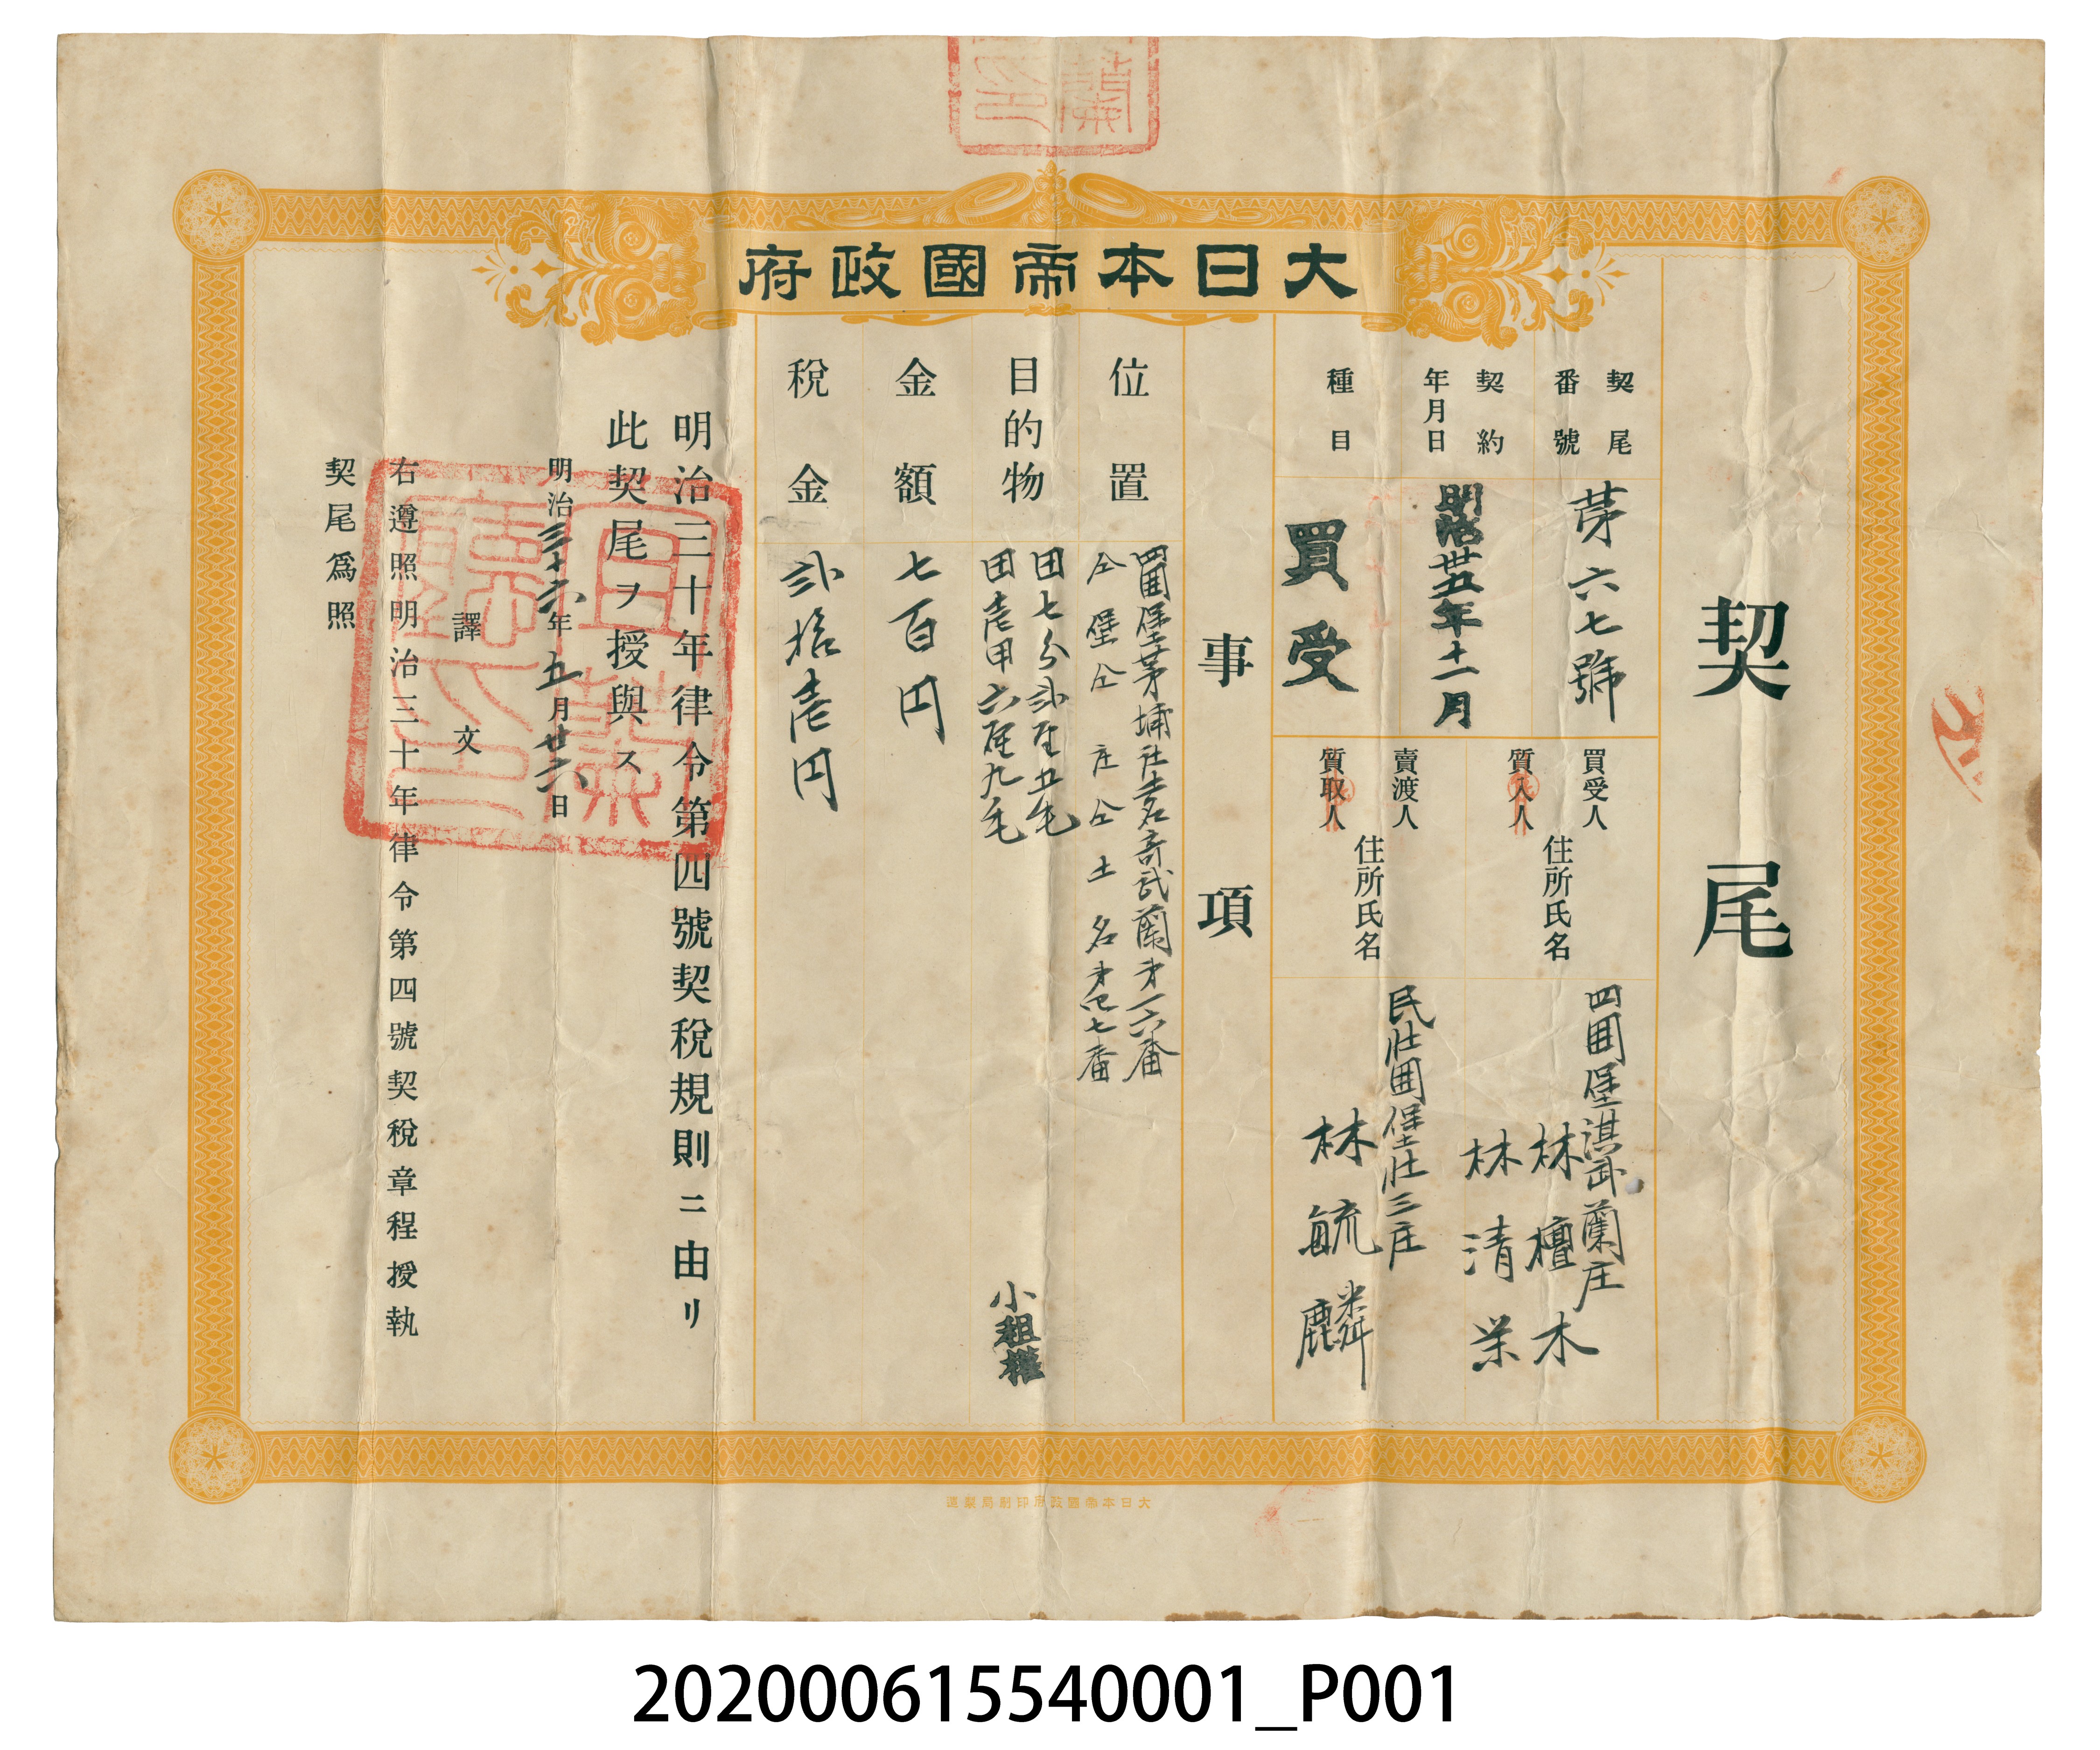 大日本帝國政府
契尾
契尾番號
第六七號
契約年月日
明治卅五年十一月
種目
買受
買受人
質入人
住所氏名
四囲堡淇武蘭庄
林檀木
林清榮
賣渡人
質取人
住所氏名
民壯囲堡壯三庄
林毓麟
事項
位置
四囲堡茅埔社土名奇武蘭第一六番
仝堡仝庄仝土名第四七番
目的物
田七分弐厘五毛
田壱甲六厘九毛
小租權
金額
七百円
稅金
弐拾壱円
明治三十年律令第四號契稅規則ニ由リ
此契尾ヲ授與ス
明治三十六年五月廿六日
譯文
右遵照明治三十年律令第四號契稅章程授執
契尾爲照
大日本帝國政府印刷局製造
202000615540001_P001